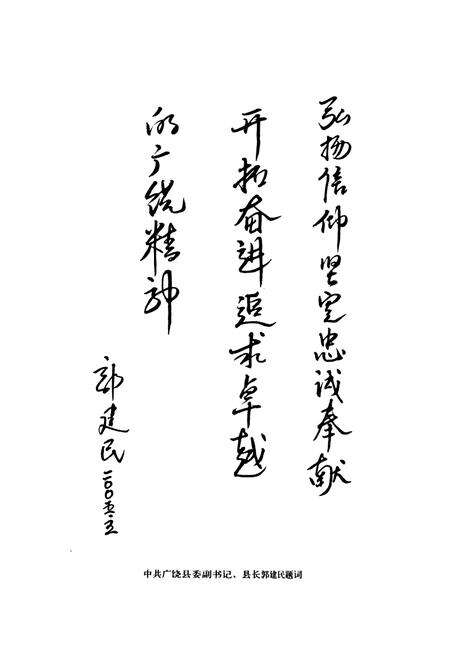 弘扬信仰坚定忠诚奉献
开拓奋进追求卓越
的广饶精神
郭建民
二〇〇五·五
中共广饶县委副书记、县长郭建民题词